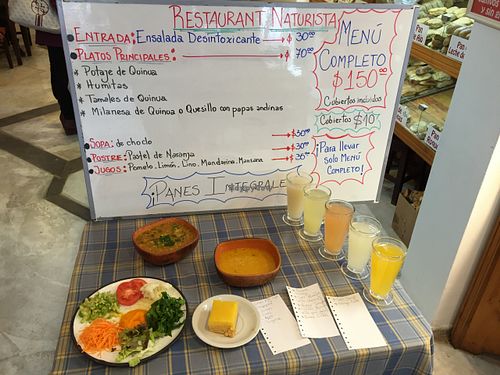 RESTAURANT NATURISTA
ENTRADA: Ensalada Desintoxicante → $ 30.00
PLATOS PRINCIPALES: → $ 70.00
* Potaje de Quinua
* Humitas
* Tamales de Quinua
* Milanesa de Quinoa o Quesillo con papas andinas
SOPA: de choclo → $30.00
POSTRE: Pastel de Naranja → $ 30.00
JUGOS: Pomelo, Limón, Lino, Mandarina, Manzana
¡PANES INTEGRALES
MENÚ
COMPLETO
$150.00
Cubiertos incluidos
Cubiertos $10
¡Para llevar
Solo MENÚ
COMPLETO!